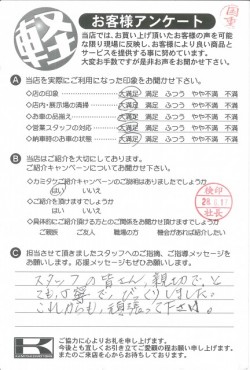 国重
軽
お客様アンケート
当店では、お買い上げ頂いたお客様の声を可能
な限り現場に反映し、お客様により良い商品と
サービスを提供する事に努めています。
大変お手数ですが是非お声をお聞かせ下さい。
A 当店を実際にご利用になった印象をお聞かせ下さい。
◇店の印象 大満足 満足 ふつう やや不満 不満
◇店内・展示場の清掃 大満足 満足 ふつう やや不満 不満
◇お車の品揃え 大満足 満足 ふつう やや不満 不満
◇営業スタッフの対応 大満足 満足 ふつう やや不満 不満
◇納車時のお車の状態 大満足 満足 ふつう やや不満 不満
B 当店はご紹介を大切にしております。
ご紹介キャンペーンについてお聞かせ下さい。
◇カミタケご紹介キャンペーンの説明はありましたでしょうか
はい いいえ
◇ご紹介を頂けますでしょうか
はい いいえ
検印
社長
◇具体的にご紹介頂ける方とのご関係をお聞かせ頂けますでしょうか
ご親族 ご友人 職場の方 機会があれば紹介したい
C 担当させて頂きましたスタッフへのご指摘、ご指導メッセージを
お願いします。応援メッセージもぜひお願いします。
スタッフの皆さん、親切で、と
ても丁寧でびっくりしました。
これからも、頑張って下さい。
K
ご協力に心よりお礼を申し上げます。
今後とも宜しくお引き立てご愛顧の程お願い申し上げます。
またのご来店を心からお待ちしております。